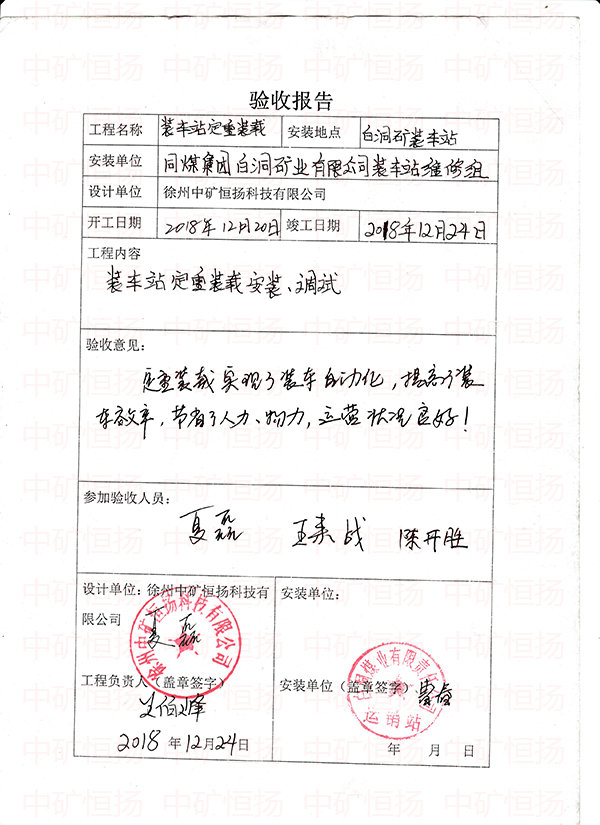 验收报告
工程名称 装车站定重装载 安装地点 白洞矿装车站
安装单位 同煤集团白洞矿业有限公司装车站维修组
设计单位 徐州中矿恒扬科技有限公司
开工日期 2018年12月20日 竣工日期 2018年12月24日
工程内容
装车站定重装载安装、调试
验收意见:
定重装载实现了装车自动化,提高了装
车效率,节省了人力、物力,运营状况良好!
参加验收人员:
夏磊 陈开胜
设计单位:徐州中矿恒扬科技有
限公司
夏磊
徐州中矿恒扬科技有限公司
工程负责人(盖章签字)
2018年12月24日
安装单位:
安装单位(盖章签字)
运销站
年 月 日
中矿恒扬